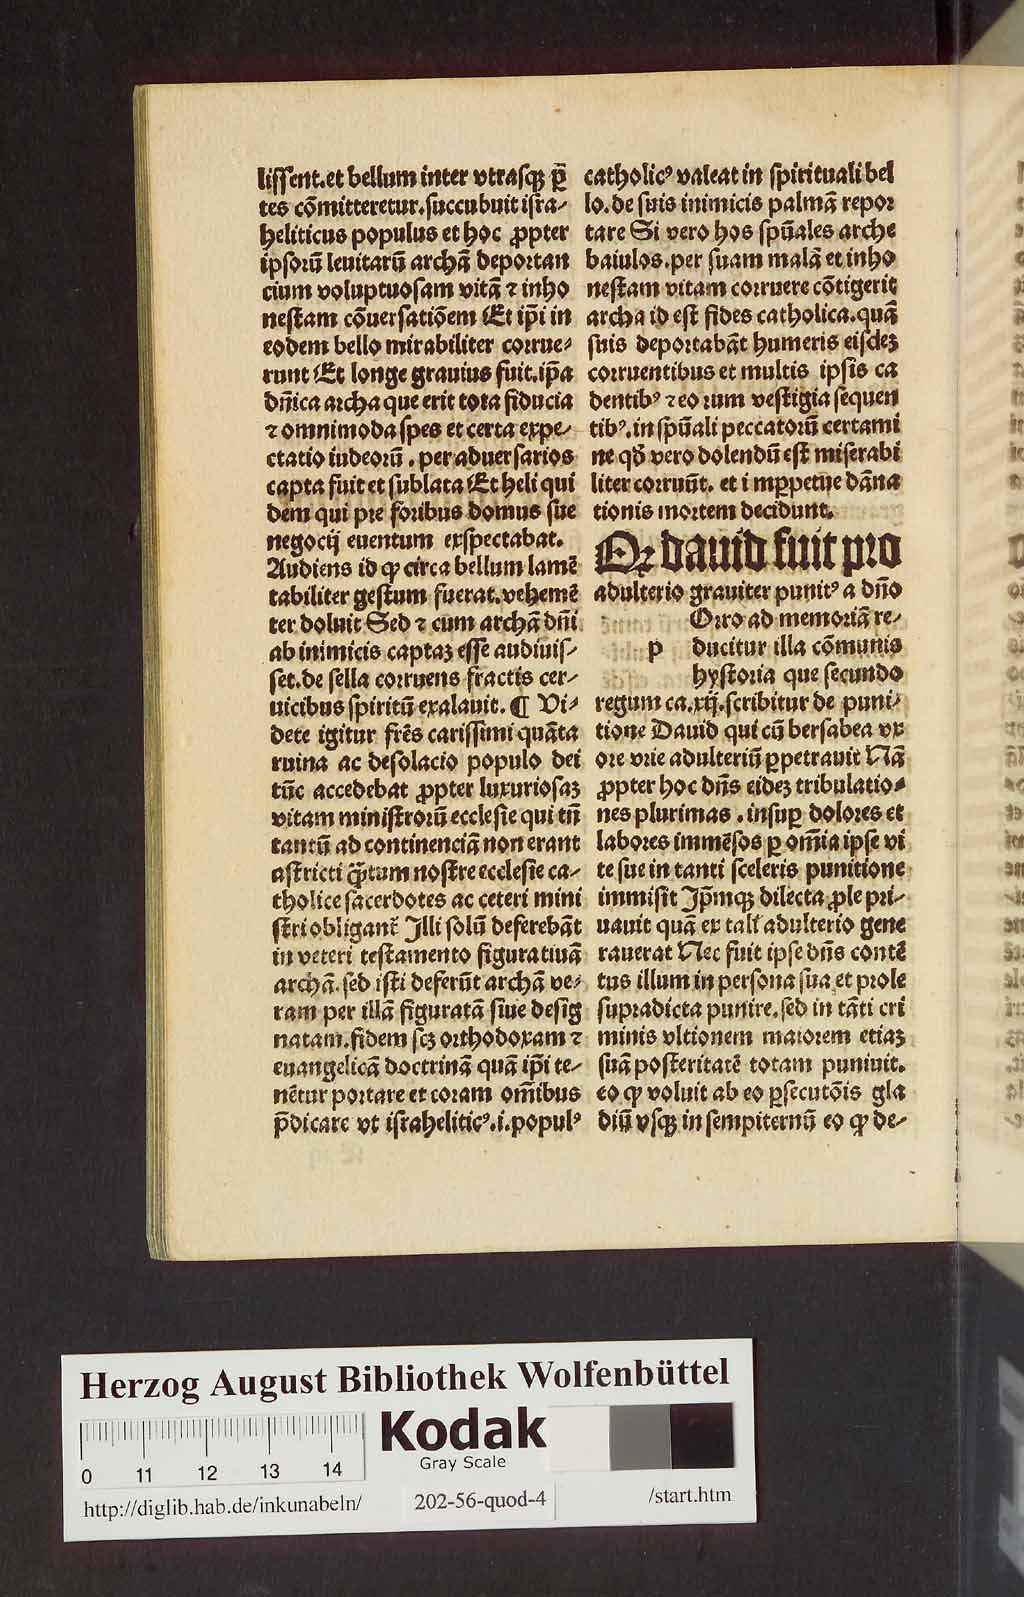 lissent.et bellum inter vtrasqꝫ ꝑ̄
tes cōmitteretur.succubuit isra-
heliticus populus et hoc ꝓpter
ipsorū leuitarū archā deportan
cium voluptuosam vitā ⁊ inho
nestam cōuersatiōem Et ip̄i in
eodem bello mirabiliter corrue-
runt Et longe grauius fuit.ip̄a
dn̄ica archa que erit tota fiducia
⁊ omnimoda spes et certa expe-
ctatio iudeorū. per aduersarios
capta fuit et sublata Et heli qui
dem qui pre foribus domus sue
negocij euentum exspectabat.
Audiens id ꝙ circa bellum lamē
tabiliter gestum fuerat.vehemē
ter doluit Sed ⁊ cum archā dn̄i
ab inimicis captaꝫ esse audiuis-
set.de sella corruens fractis cer-
uicibus spiritū exalauit. ¶ Vi-
dete igitur fr̄es carissimi quāta
ruina ac desolacio populo dei
tūc accedebat ꝓpter luxuriosaꝫ
vitam ministrorū ecclesie qui tn̄
tantū ad continenciā non erant
astricti qͣ̄tum nostre ecclesie ca-
tholice sacerdotes ac ceteri mini
stri obligant᷑ Illi solū deferebāt
in veteri testamento figuratiuā
archā.sed isti deferūt archā ve-
ram per illā figuratā siue desig
natam.fidem scꝫ orthodoxam ⁊
euangelicā doctrinā quā ip̄i te-
nētur portare et coram om̄ibus
p̄dicare vt israheliticꝰ.i.populꝰ
catholicꝰ valeat in spirituali bel
lo.de suis inimicis palmā repor
tare Si vero hos sp̄uales arche
baiulos.per suam malā et inho
nestam vitam corruere cōtigerit
archa id est fides catholica.quā
suis deportabāt humeris eisdeꝫ
corruentibus et multis ipsis ca
dentibꝰ ⁊ eorum vestigia sequen
tibꝰ.in sp̄uali peccatorū certami
ne qḋ vero dolendū est miserabi
liter corruūt. et imꝑpetue dāna
tionis mortem decidunt.
Qꝛ dauid fuit pro
adulterio grauiter punitꝰ a dn̄o
Orro ad memoriā re-
p ducitur illa cōmunis
hystoria que secundo
regum ca.xij.scribitur de puni-
tione Dauid qui cū bersabea vx
ore vrie adulteriū ꝑpetrauit Nā
ꝓpter hoc dn̄s eideꝫ tribulatio-
nes plurimas . insuꝑ dolores et
labores immēsos ꝑ om̄ia ipse vi
te sue in tanti sceleris punitione
immisit Ip̄mqꝫ dilecta ꝓle pri-
uauit quā ex tali adulterio gene
rauerat Nec fuit ipse dn̄s contē
tus illum in persona sua et prole
supradicta punire.sed in tāti cri
minis vltionem maiorem etiaꝫ
suā posteritatē totam puniuit.
eo ꝙ voluit ab eo ꝑsecutōis gla
diū vsqꝫ in sempiternū eo ꝙ de-
Herzog August Bibliothek Wolfenbüttel
Kodak
Gray Scale
0 11 12 13 14
http://diglib.hab.de/inkunabeln/ 202-56-quod-4 /start.htm